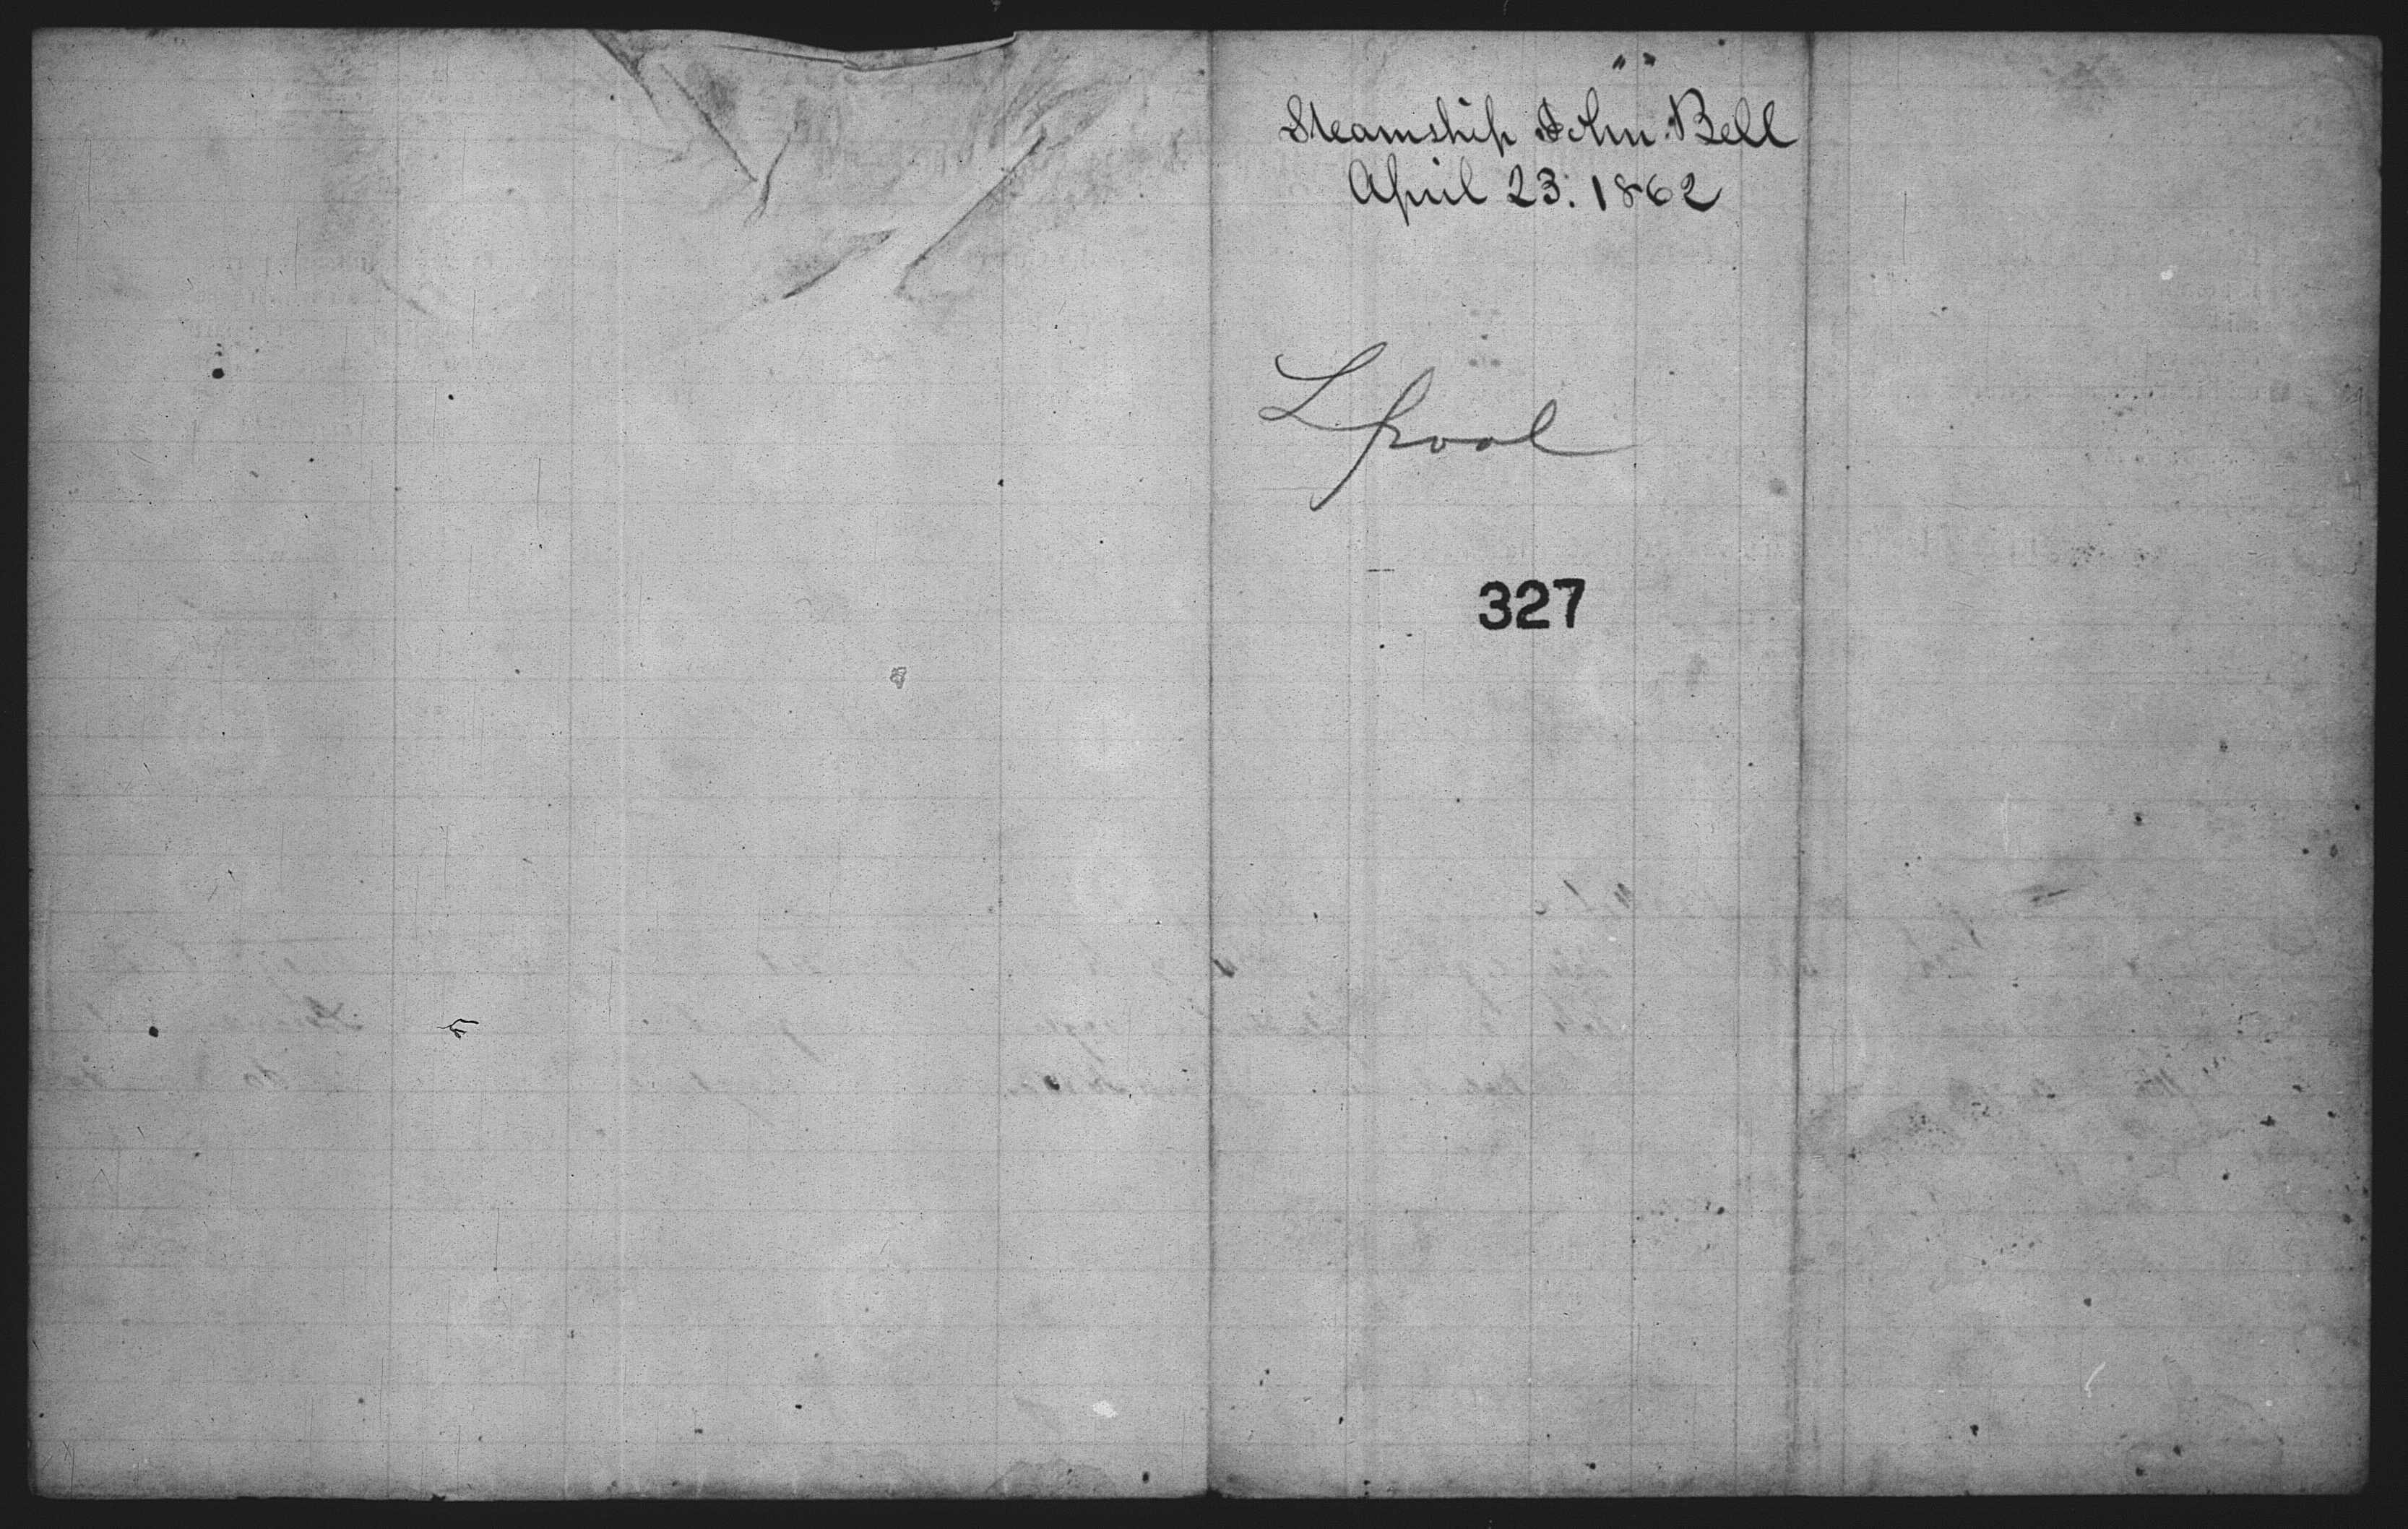 Steamship John Bell
April 23. 1862
Lpool
327